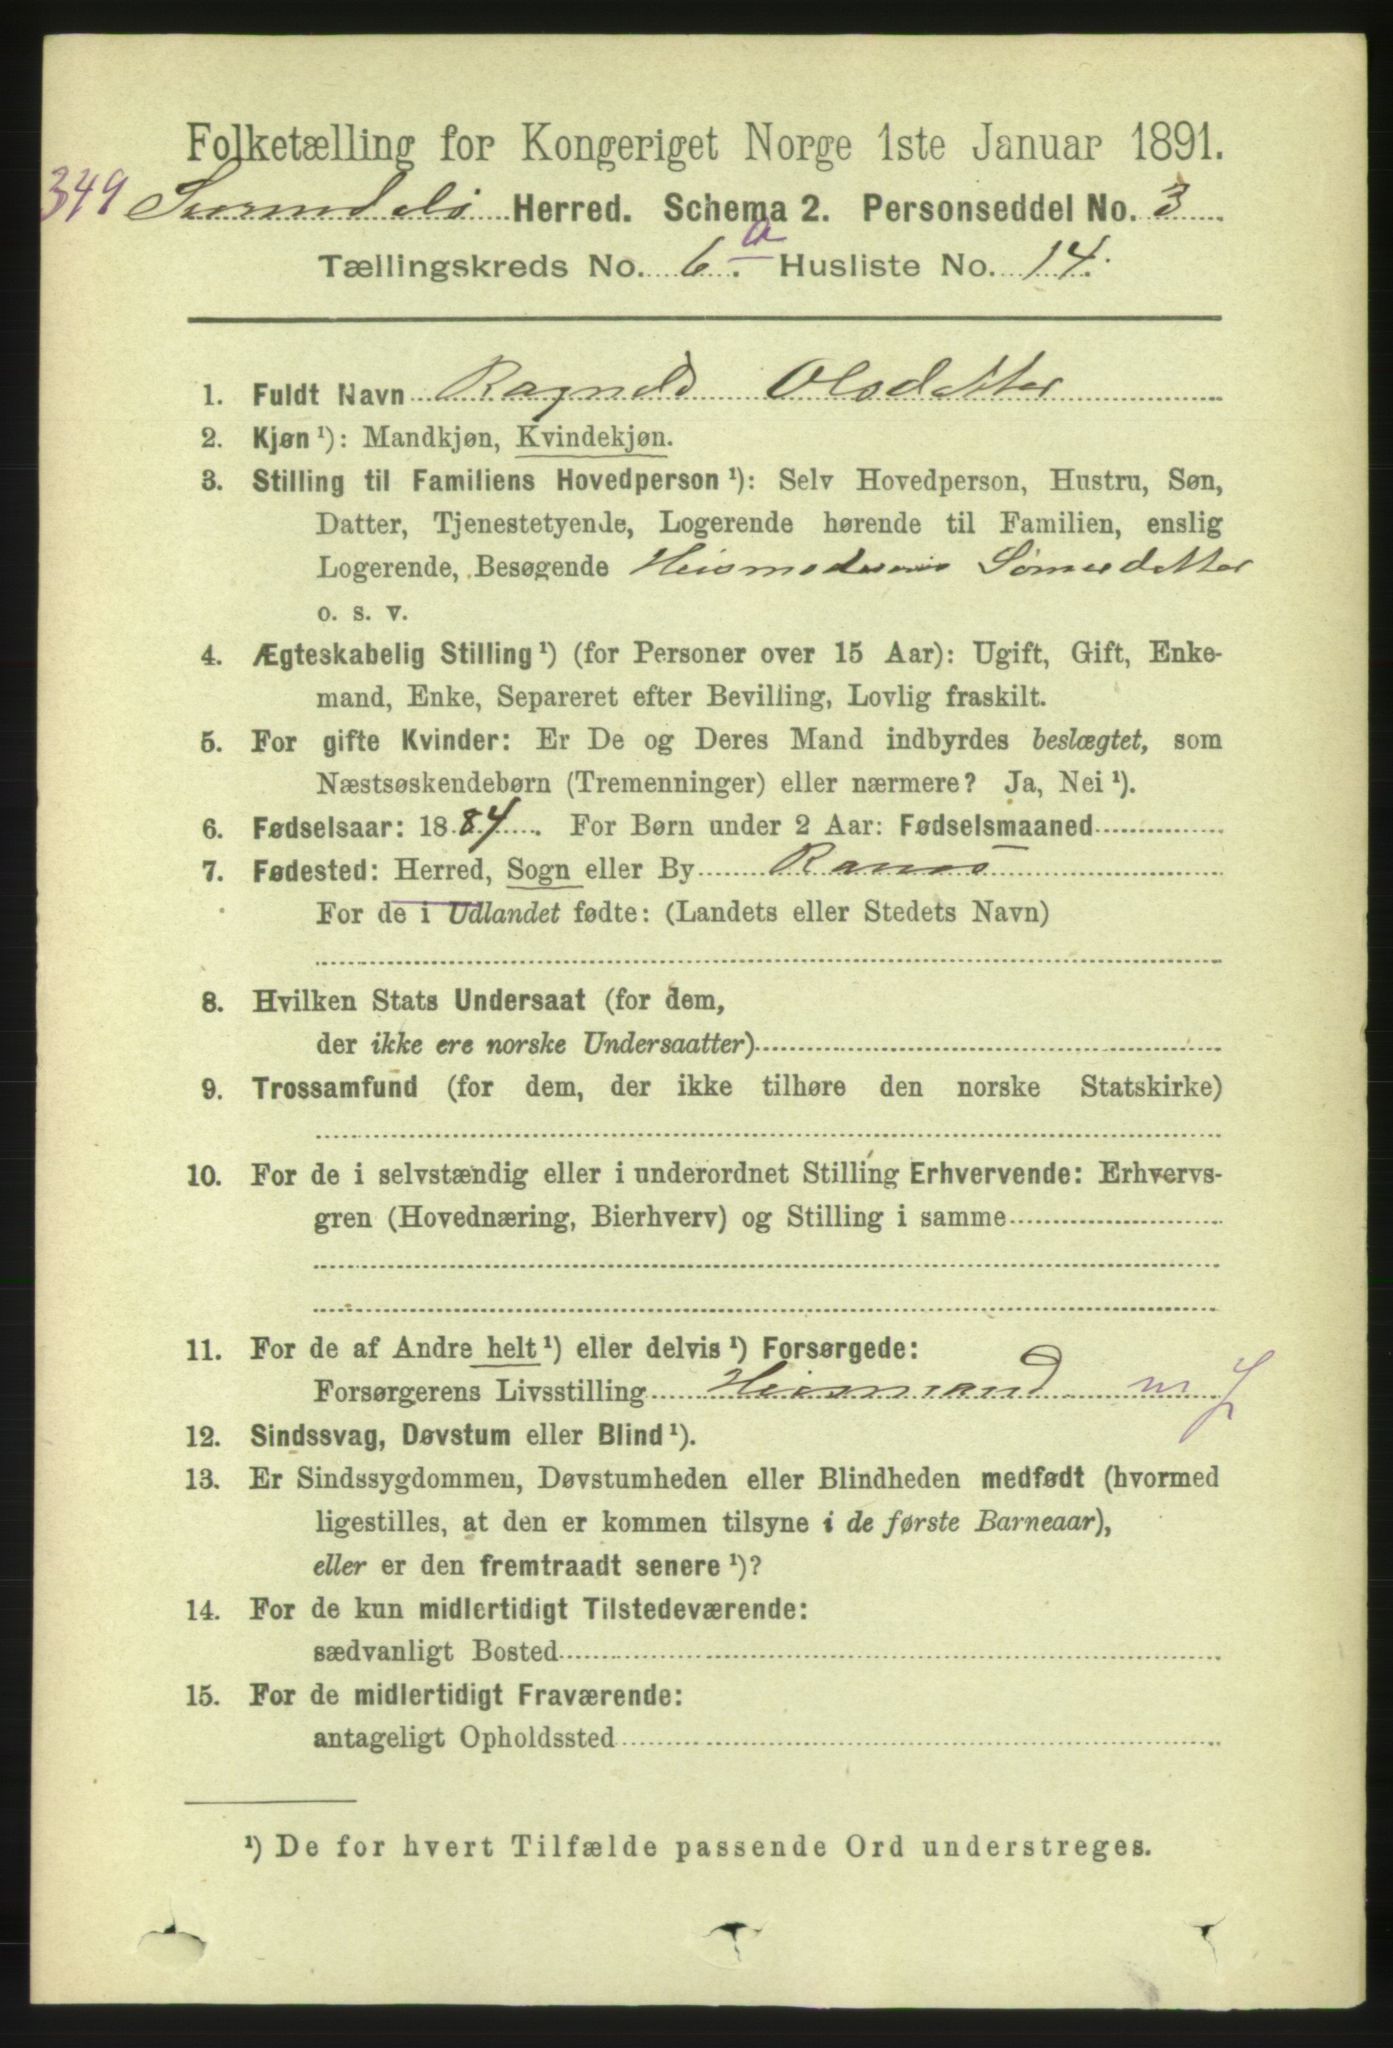 Folketælling for Kongeriget Norge 1ste Januar 1891.
349 Surendals Herred. Schema 2. Personseddel No. 3
Tællingskreds No. 6. a Husliste No. 14.
1. Fuldt Navn Ragnild Olsdatter
2. Kjøn ¹): Mandkjøn, Kvindekjøn.
3. Stilling til Familiens Hovedperson ¹): Selv Hovedperson, Hustru, Søn,
Datter, Tjenestetyende, Logerende hørende til Familien, enslig
Logerende, Besøgende Sønnedatter
o. s. v.
4. Ægteskabelig Stilling ¹) (for Personer over 15 Aar): Ugift, Gift, Enke-
mand, Enke, Separeret efter Bevilling, Lovlig fraskilt.
5. For gifte Kvinder: Er De og Deres Mand indbyrdes beslægtet, som
Næstsøskendebørn (Tremenninger) eller nærmere? Ja, Nei ¹).
6. Fødselsaar: 1884. For Børn under 2 Aar: Fødselsmaaned
7. Fødested: Herred, Sogn eller By Ranes
For de i Udlandet fødte: (Landets eller Stedets Navn)
8. Hvilken Stats Undersaat (for dem,
der ikke ere norske Undersaatter)
9. Trossamfund (for dem, der ikke tilhøre den norske Statskirke)
10. For de i selvstændig eller i underordnet Stilling Erhvervende: Erhvervs-
gren (Hovednæring, Bierhverv) og Stilling i samme
11. For de af Andre helt ¹) eller delvis ¹) Forsørgede:
Forsørgerens Livsstilling Huusmand m J
12. Sindssvag, Døvstum eller Blind ¹).
13. Er Sindssygdommen, Døvstumheden eller Blindheden medfødt (hvormed
ligestilles, at den er kommen tilsyne i de første Barneaar),
eller er den fremtraadt senere ¹)?
14. For de kun midlertidigt Tilstedeværende:
sædvanligt Bosted
15. For de midlertidigt Fraværende:
antageligt Opholdssted
¹) De for hvert Tilfælde passende Ord understreges.